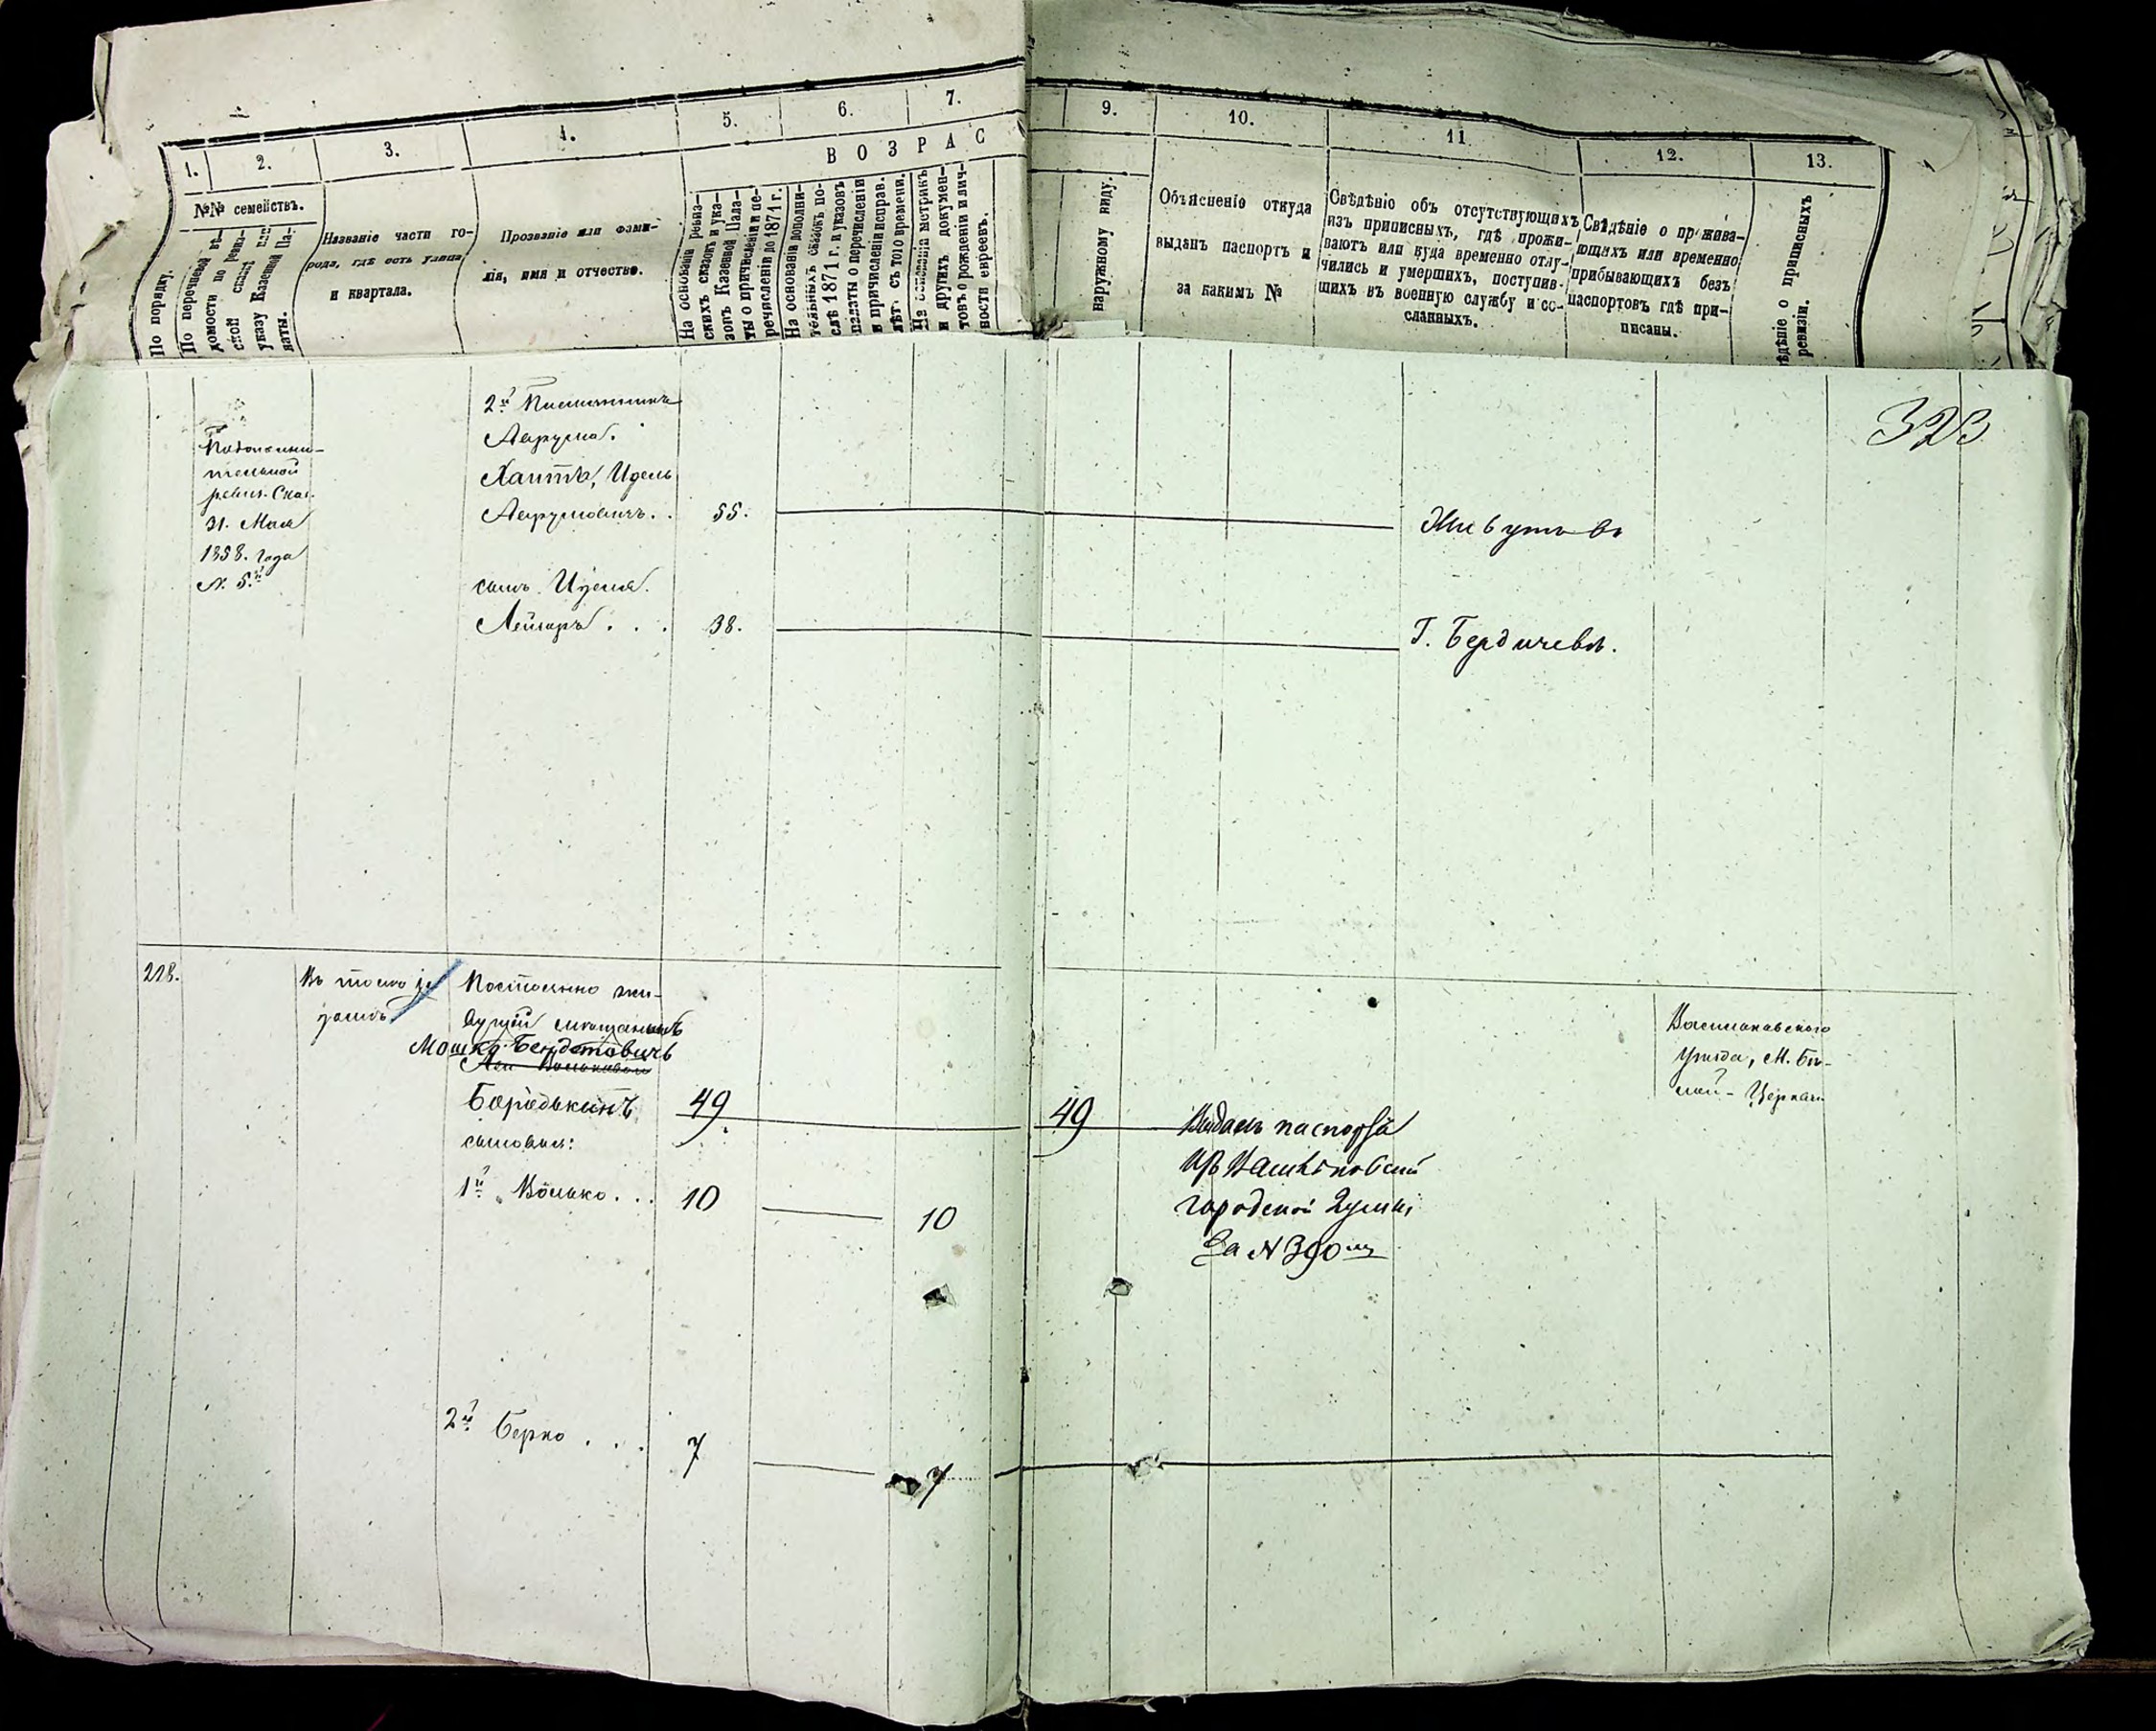 1.
2.
3.
4.
5.
6.
7.
9.
10.
11
12.
13.
В О З Р А С
№№ семействъ.
По порядку.
По перечневой вѣ-
домости по ревиз-
ской сказкѣ или
указу Казенной Па-
латы.
Названіе части го-
рода, гдѣ есть улица
и квартала.
Прозваніе или фами-
лія, имя и отчество.
На основаніи ревиз-
скихъ сказокъ и ука-
зовъ Казенной Пала-
ты о причисленіи и пе-
речисленіи до 1871 г.
На основаніи дополни-
тельныхъ сказокъ по-
слѣ 1871 г. и указовъ
палаты о перечисленіи
и причисленіи исправ.
лѣтъ съ того времени.
На основаніи метрикъ
и другихъ докумен-
товъ о рожденіи и лич-
ности евреевъ.
наружному виду.
Объясненіе откуда
выданъ паспортъ и
за какимъ №
Свѣдѣніе объ отсутствующихъ
изъ приписныхъ, гдѣ прожи-
ваютъ или куда временно отлу-
чились и умершихъ, поступив-
шихъ въ военную службу и со-
сланныхъ.
Свѣдѣніе о прожива-
ющихъ или временно
прибывающихъ безъ
паспортовъ гдѣ при-
писаны.
ѣдѣніе о приписныхъ
ревизіи.
323
По дополни-
тельной
ревиз. Сказ.
31. Мая
1858. года
N. 5й
2й
Аврума.
Идель
Аврумовичъ . . 55.
Живутъ въ
сынъ Иделя.
Лейзоръ . . . 38.
Г. Бердичевѣ.
218.
Въ томъ же
домѣ
Постоянно жи-
вущій мѣщанинъ
Мошко Бендетовичъ
Бородькинъ 49.
49
сыновья:
1й Волько . . . 10
10
2й Берко . . . 7
7
Выданъ паспортъ
изъ
городской Думы
За N 390мъ
Васильковскаго
Уѣзда, М. Бѣ-
лой-Церкви